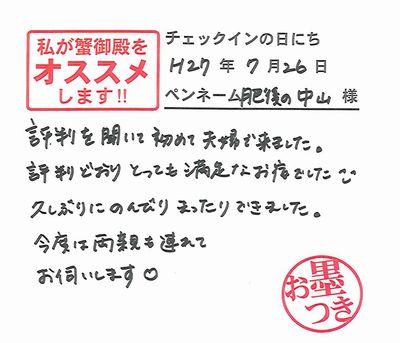 私が蟹御殿を
オススメ
します!!
チェックインの日にち
H27年7月26日
ペンネーム肥後の中山 様
評判を聞いて初めて夫婦で来ました。
評判どおりとっても満足なお宿でした
久しぶりにのんびりまったりできました。
今度は両親も連れて
お伺いします♡
お墨
つき